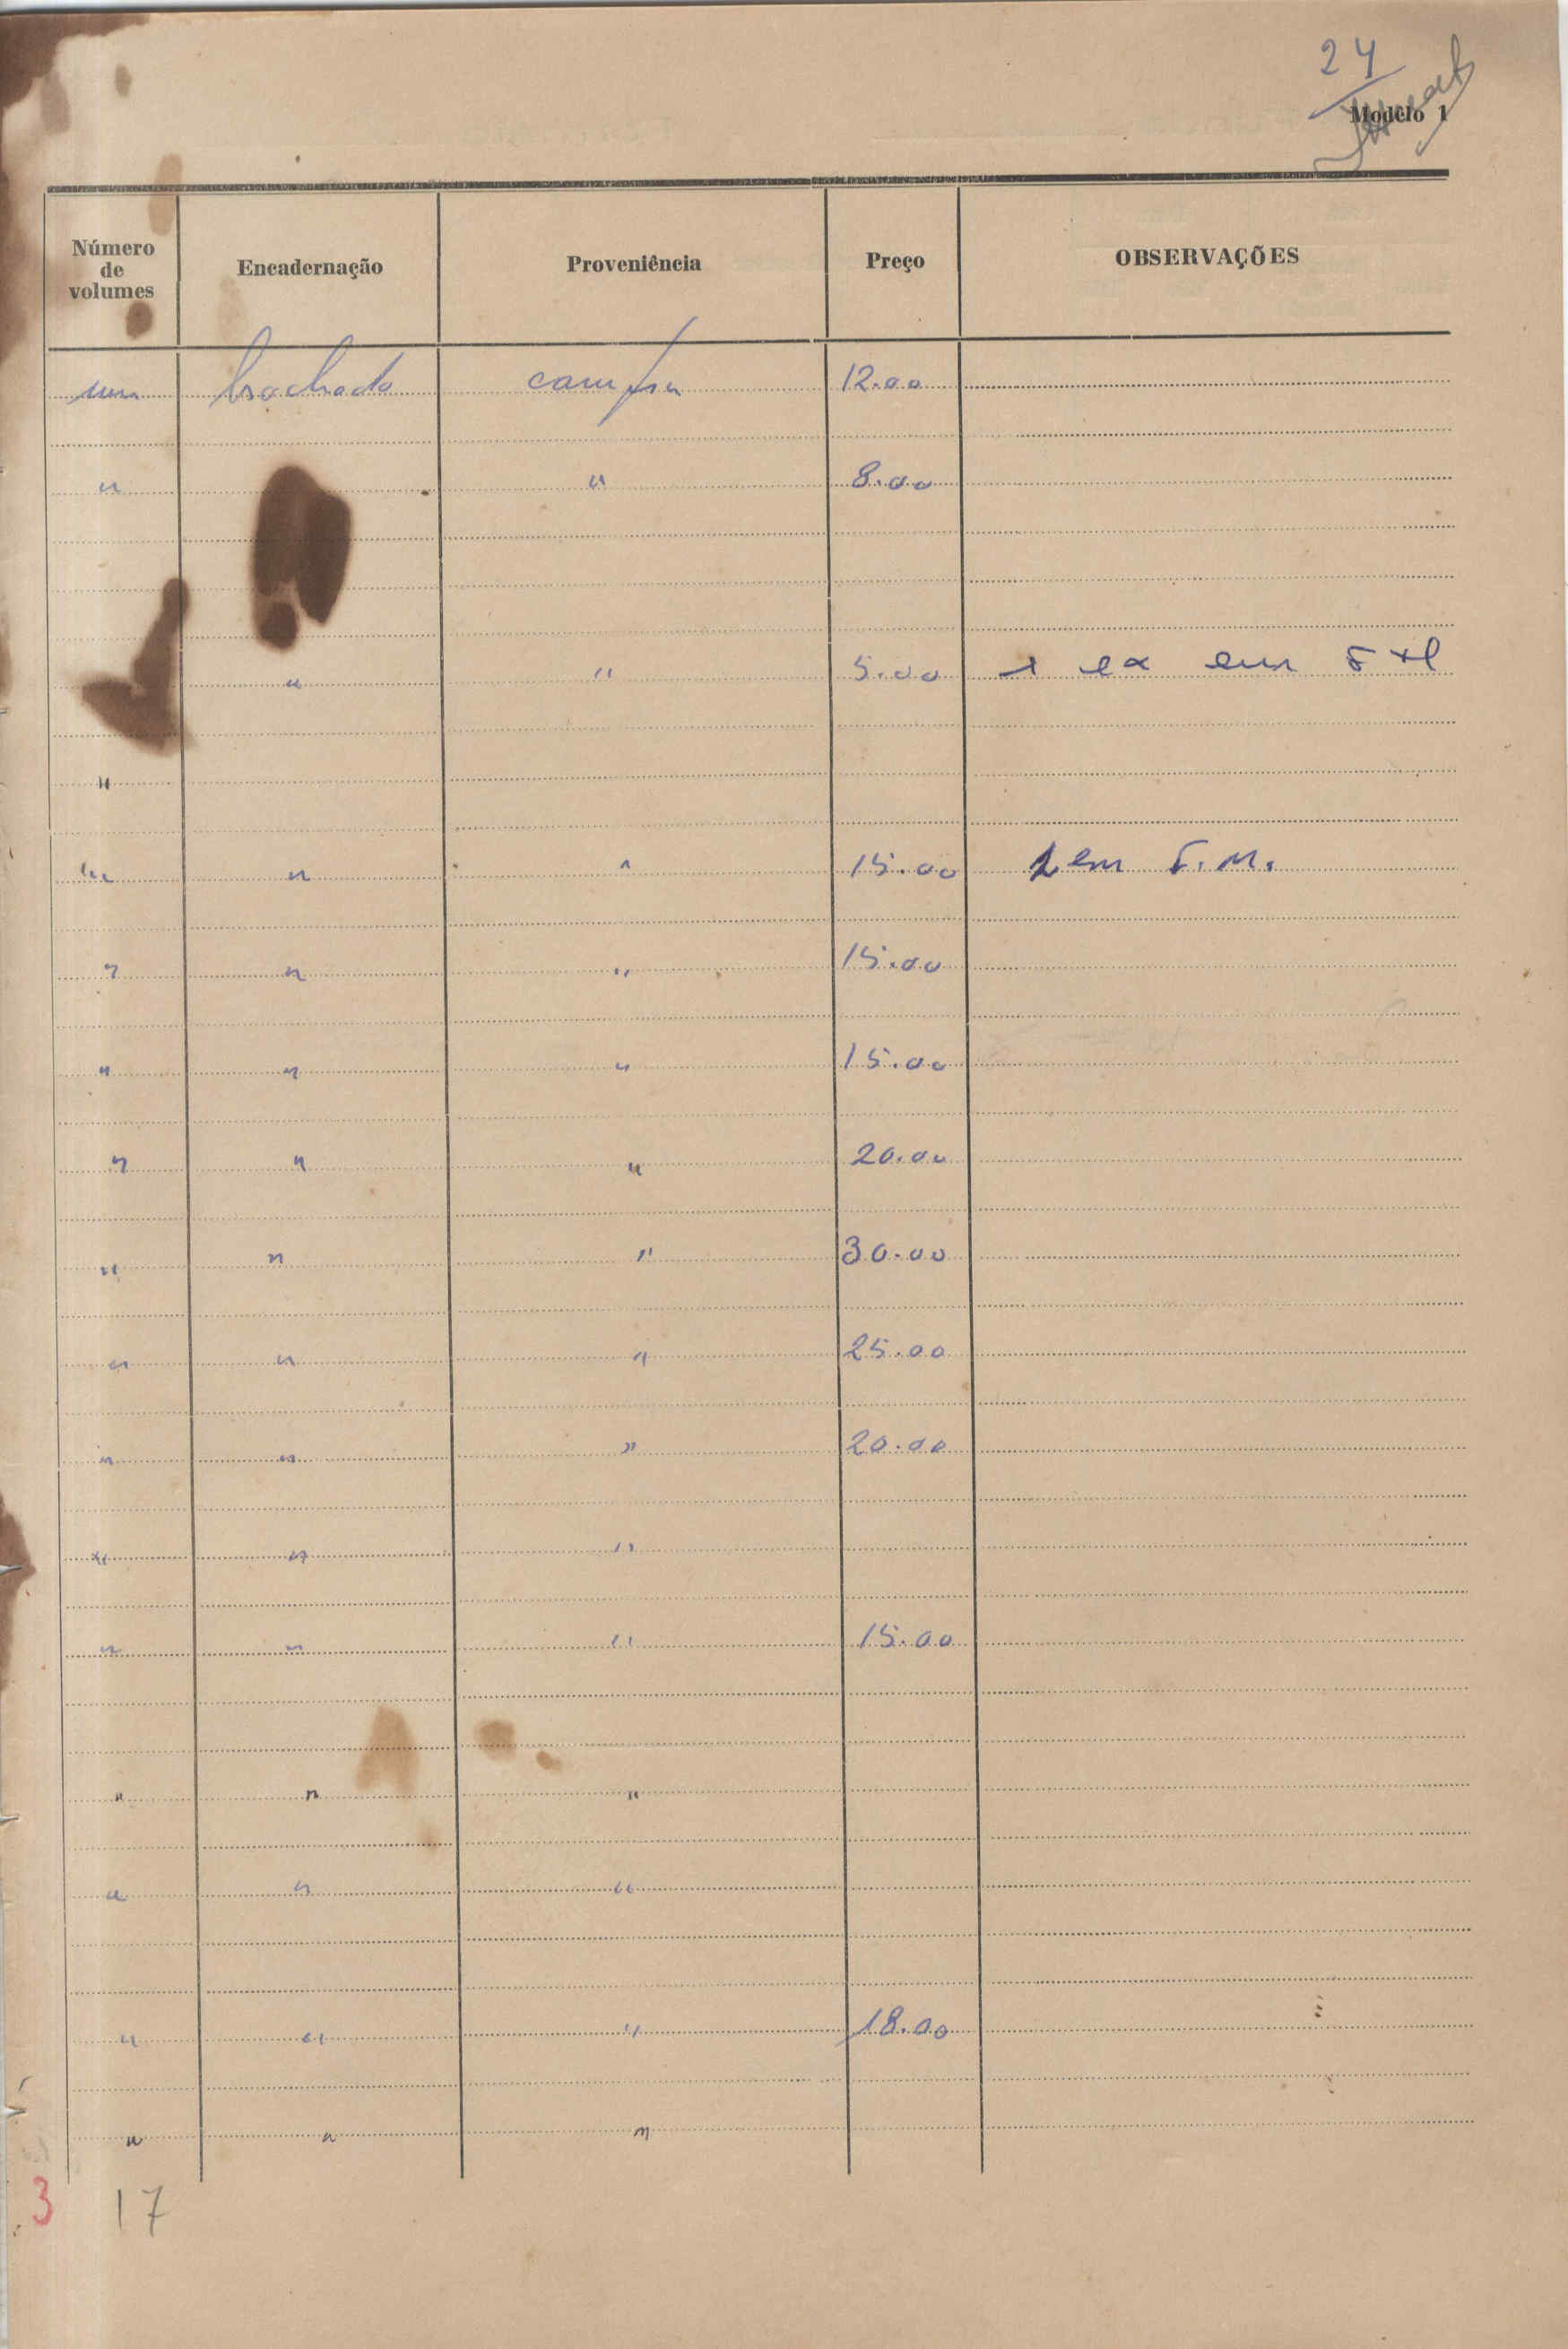 24
Modêlo 1
Número de volumes Encadernação Proveniência Preço OBSERVAÇÕES
um brochado compra 12.00
" " 8.00
" " 5.00 1 ex em
"
" " " 15.00 1 em F. M.
" " " 15.00
" " " 15.00
" " " 20.00
" " " 30.00
" " " 25.00
" " " 20.00
" " "
" " " 15.00
" " "
" " "
" " " 18.00
" " "
3 17